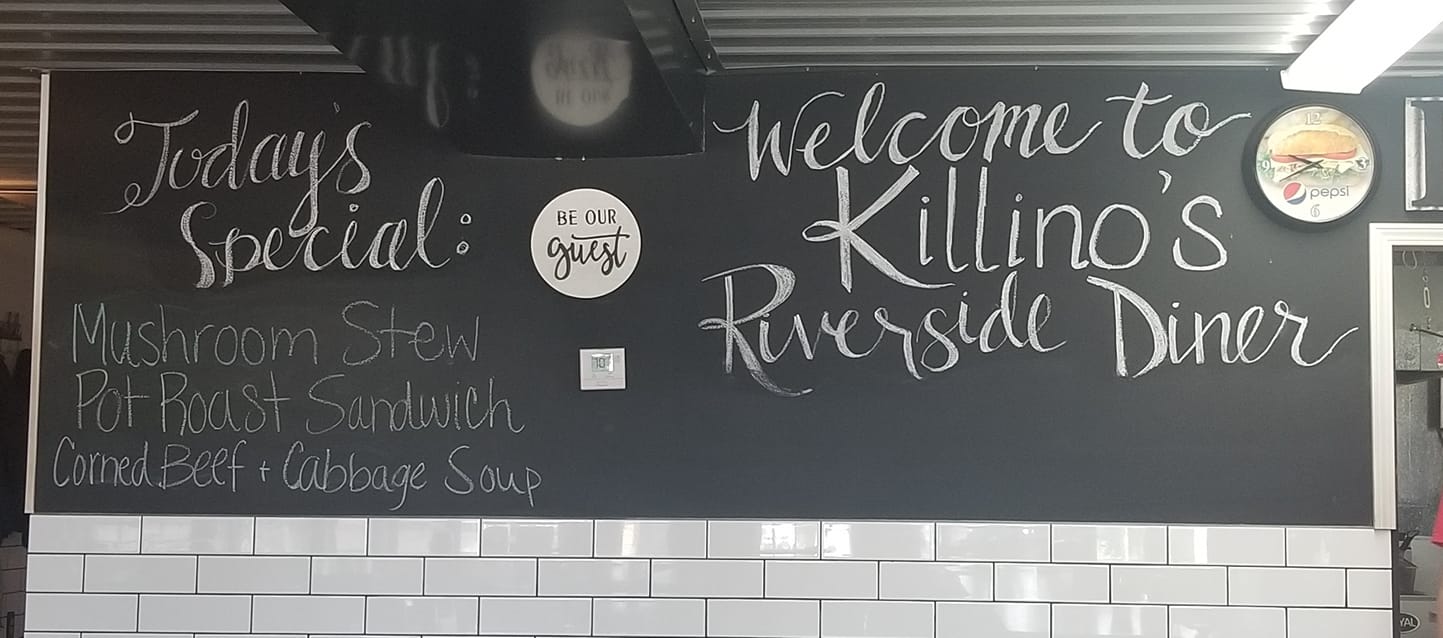 Today's
Special:
Mushroom Stew
Pot Roast Sandwich
Corned Beef + Cabbage Soup
BE OUR
guest
70°
Welcome to
Killino's
Riverside Diner
12
9
3
pepsi
6